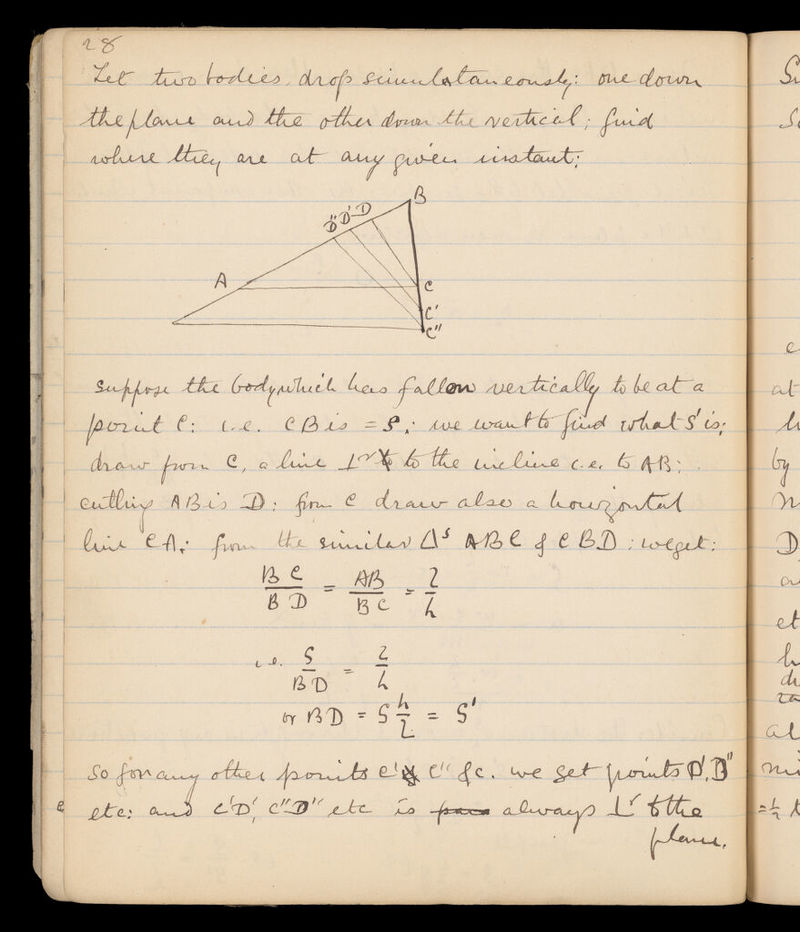 28
Let two bodies drop simultaneously: one down
the plane and the other down the vertical; find
where they are at any given instant:
B
D'' D' D
A
C
C'
C''
suppose the body which has fallen vertically to be at a
point C: i.e. CB is = S; we want to find what S' is;
draw from C, a line ⊥r to the incline i.e. to AB:
cutting AB is D: from C draw also a horizontal
line CA; from the similar Δs ABC & CBD: we get:
BC/BD = AB/BC = l/h
i.e. S/BD = l/h
or BD = S h/l = S'
so for any other points C' C'' &c. we get points D', D''
etc: and C'D', C''D'' etc is always ⊥r to the
plane.